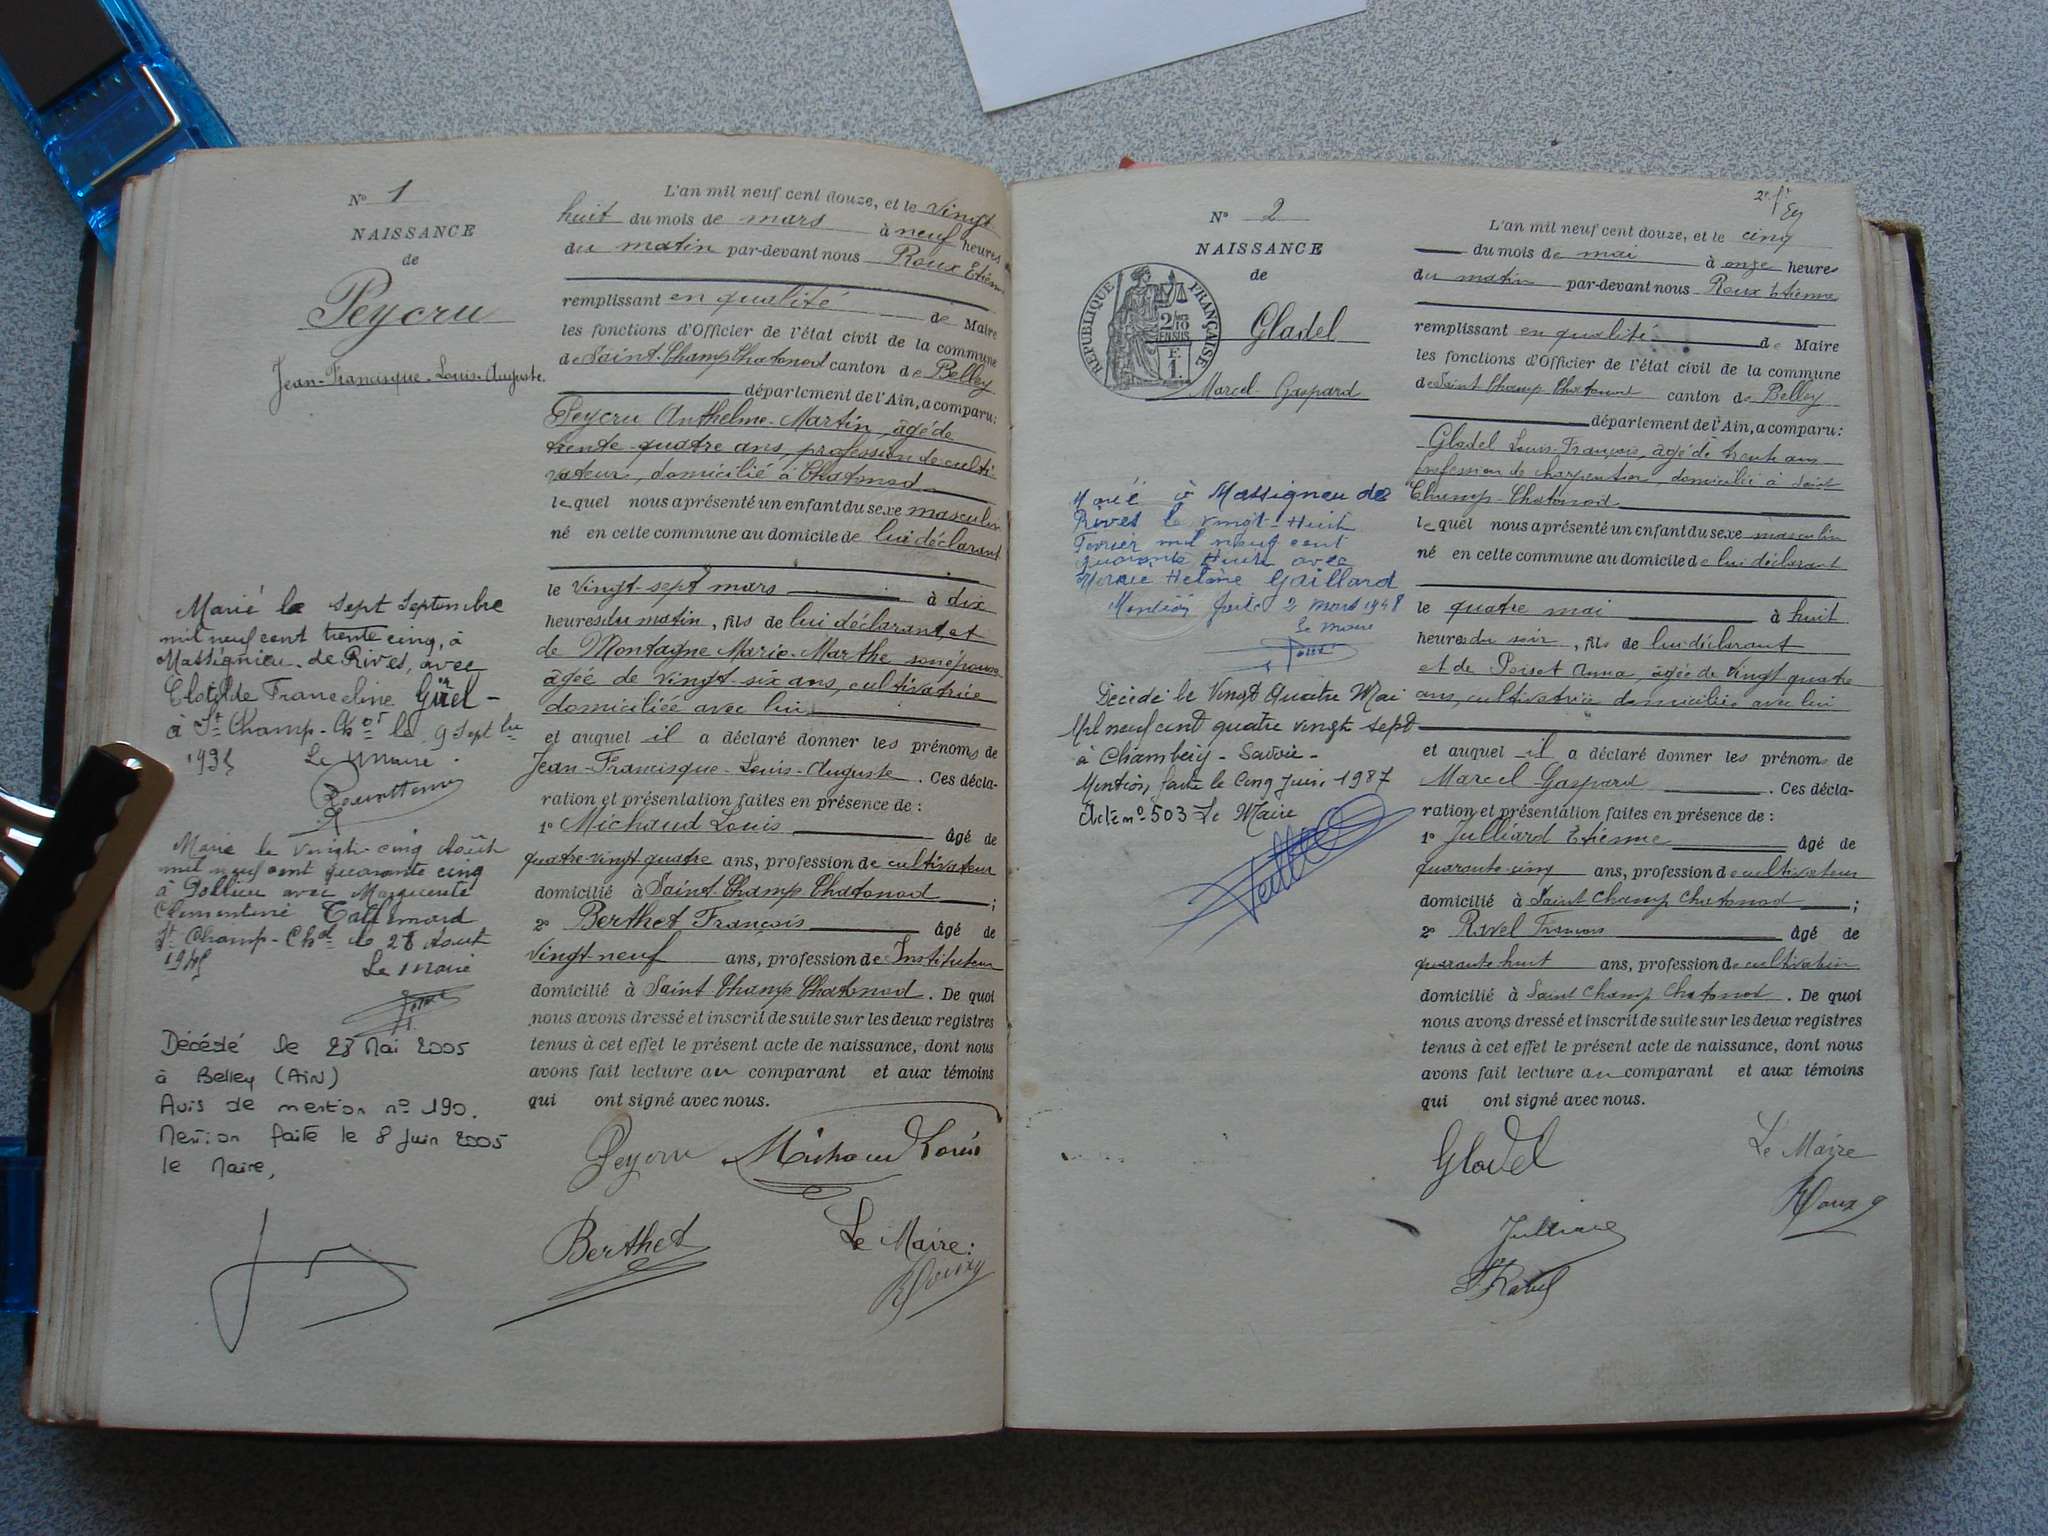 N° 1
NAISSANCE
de
Peycru
Jean-Francisque-Louis-Auguste
Marié le sept Septembre
mil neuf cent trente cinq, à
Massignieu-de Rives, avec
Clotilde Franceline
à St Champ-Ch le 9 Sept
1935
Le Maire
Marié le vingt-cinq Août
mil neuf cent quarante cinq
à Pollieu avec Marguerite
Clementine
St Champ-Chd le 28 Août
1945
Le Maire
Décédé le 23 Mai 2005
à Belley (AIN)
Avis de mention n° 190.
Mention faite le 8 Juin 2005
le Maire,
L'an mil neuf cent douze, et le vingt
huit du mois de mars à neuf heures
du matin par-devant nous Roux Etienne
remplissant en qualité de Maire
les fonctions d'Officier de l'état civil de la commune
de Saint-Champ Chatonod canton de Belley
département de l'Ain, a comparu:
Peycru Anthelme-Martin, âgé de
trente-quatre ans, profession de culti
vateur, domicilié à Chatonod
le quel nous a présenté un enfant du sexe masculin
né en cette commune au domicile de lui déclarant
le vingt-sept mars à dix
heures du matin, fils de lui déclarant et
de Montagne Marie-Marthe son épouse
âgée de vingt-six ans, cultivatrice
domiciliée avec lui
et auquel il a déclaré donner les prénoms de
Jean-Francisque-Louis-Auguste. Ces décla-
ration et présentation faites en présence de :
1° Michaud Louis âgé de
quatre-vingt-quatre ans, profession de cultivateur
domicilié à Saint-Champ Chatonod ;
2° Berthet François âgé de
vingt-neuf ans, profession de Instituteur
domicilié à Saint Champ Chatonod. De quoi
nous avons dressé et inscrit de suite sur les deux registres
tenus à cet effet le présent acte de naissance, dont nous
avons fait lecture au comparant et aux témoins
qui ont signé avec nous.
Peycru Michaud Louis
Berthet Le Maire:
Roux
2e
N° 2
NAISSANCE
de
RÉPUBLIQUE FRANÇAISE
2/10
EN SUS
F.
1.
Gladel
Marcel Gaspard
Marié à Massignieu de
Rives le vingt-Huit
Fevrier mil neuf cent
quarante Huit avec
Hélène Gaillard
Mention faite 2 mars 1948
Le Maire
Décédé le Vingt Quatre Mai
Mil neuf cent quatre vingt sept
à Chambéry - Savoie -
Mention faite le Cinq Juin 1987
Acte n° 503 Le Maire
L'an mil neuf cent douze, et le cinq
du mois de mai à onze heures
du matin par-devant nous Roux Etienne
remplissant en qualité de Maire
les fonctions d'Officier de l'état civil de la commune
de Saint Champ Chatonod canton de Belley
département de l'Ain, a comparu:
Gladel Louis-François, âgé de trente ans
profession de charpentier, domicilié à Saint
Champ-Chatonod
le quel nous a présenté un enfant du sexe masculin
né en cette commune au domicile de lui déclarant
le quatre mai à huit
heures du soir, fils de lui déclarant
et de Anna, âgée de vingt quatre
ans, cultivatrice domiciliée avec lui
et auquel il a déclaré donner les prénoms de
Marcel Gaspard. Ces décla-
ration et présentation faites en présence de :
1° Julliard Etienne âgé de
quarante-cinq ans, profession de cultivateur
domicilié à Saint Champ Chatonod ;
2° Ravel François âgé de
quarante huit ans, profession de cultivateur
domicilié à Saint Champ Chatonod. De quoi
nous avons dressé et inscrit de suite sur les deux registres
tenus à cet effet le présent acte de naissance, dont nous
avons fait lecture au comparant et aux témoins
qui ont signé avec nous.
Gladel Le Maire
Roux
Julliard
Ravel